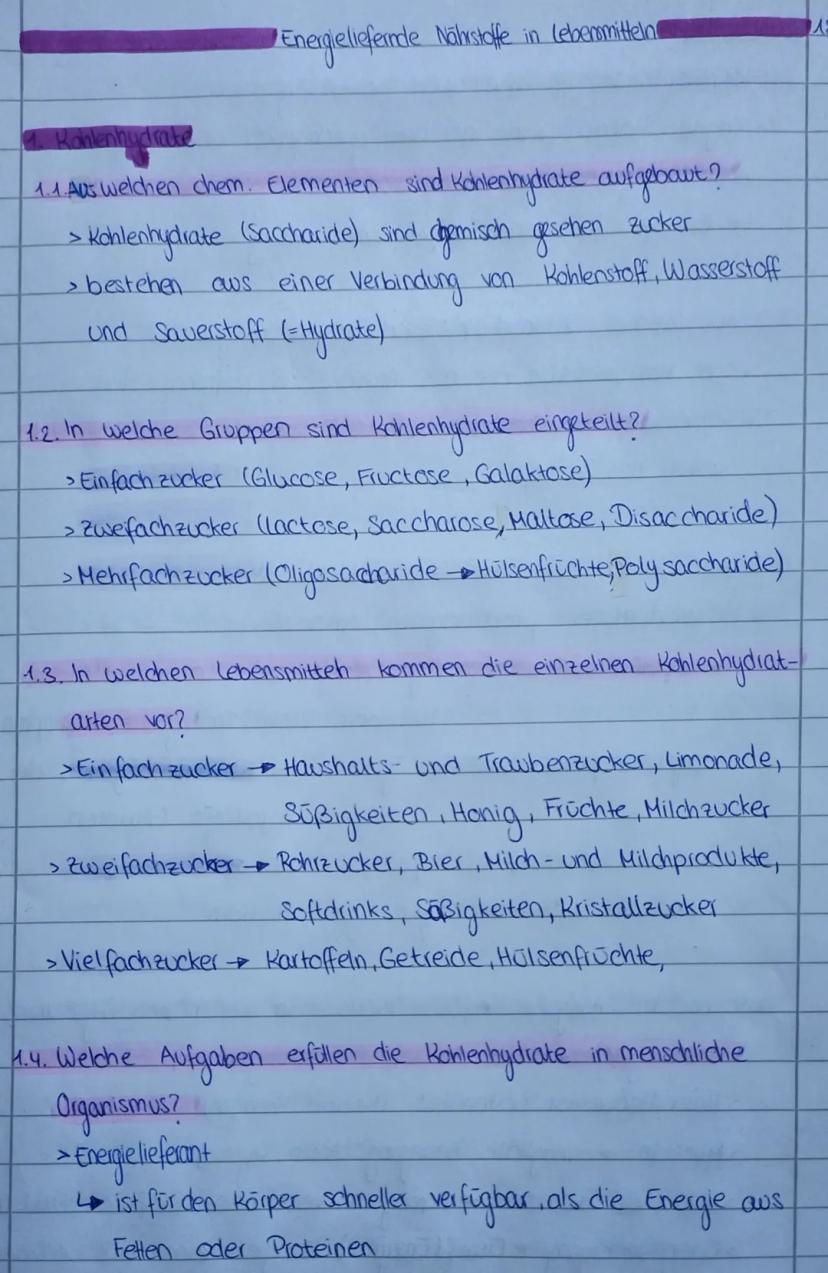 Energieliefernde Nährstoffe in Lebensmitteln
1. Kohlenhydrate
1.1. Aus welchen chem. Elementen sind Kohlenhydrate aufgebaut?
> Kohlenhydrate (Saccharide) sind chemisch gesehen zucker
> bestehen aus einer Verbindung von Kohlenstoff, Wasserstoff
und Sauerstoff (=Hydrate)
1.2. In welche Gruppen sind Kohlenhydrate eingeteilt?
> Einfachzucker (Glucose, Fructose, Galaktose)
> Zweifachzucker (Lactose, Saccharose, Maltose, Disaccharide)
> Mehrfachzucker (Oligosaccharide → Hülsenfrüchte, Polysaccharide)
1.3. In welchen Lebensmitteln kommen die einzelnen Kohlenhydrat-
arten vor?
> Einfachzucker → Haushalts- und Traubenzucker, Limonade,
Süßigkeiten, Honig, Früchte, Milchzucker
> Zweifachzucker → Rohrzucker, Bier, Milch- und Milchprodukte,
Softdrinks, Süßigkeiten, Kristallzucker
> Vielfachzucker → Kartoffeln, Getreide, Hülsenfrüchte,
1.4. Welche Aufgaben erfüllen die Kohlenhydrate in menschliche
Organismus?
> Energielieferant
↳ ist für den Körper schneller verfügbar, als die Energie aus
Fetten oder Proteinen